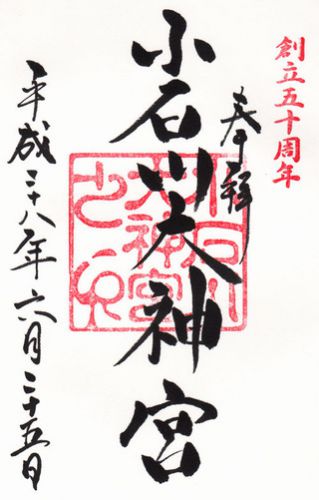 創立五十周年
奉拝
小石川大神宮
小石川大神宮之印
平成二十八年六月二十五日